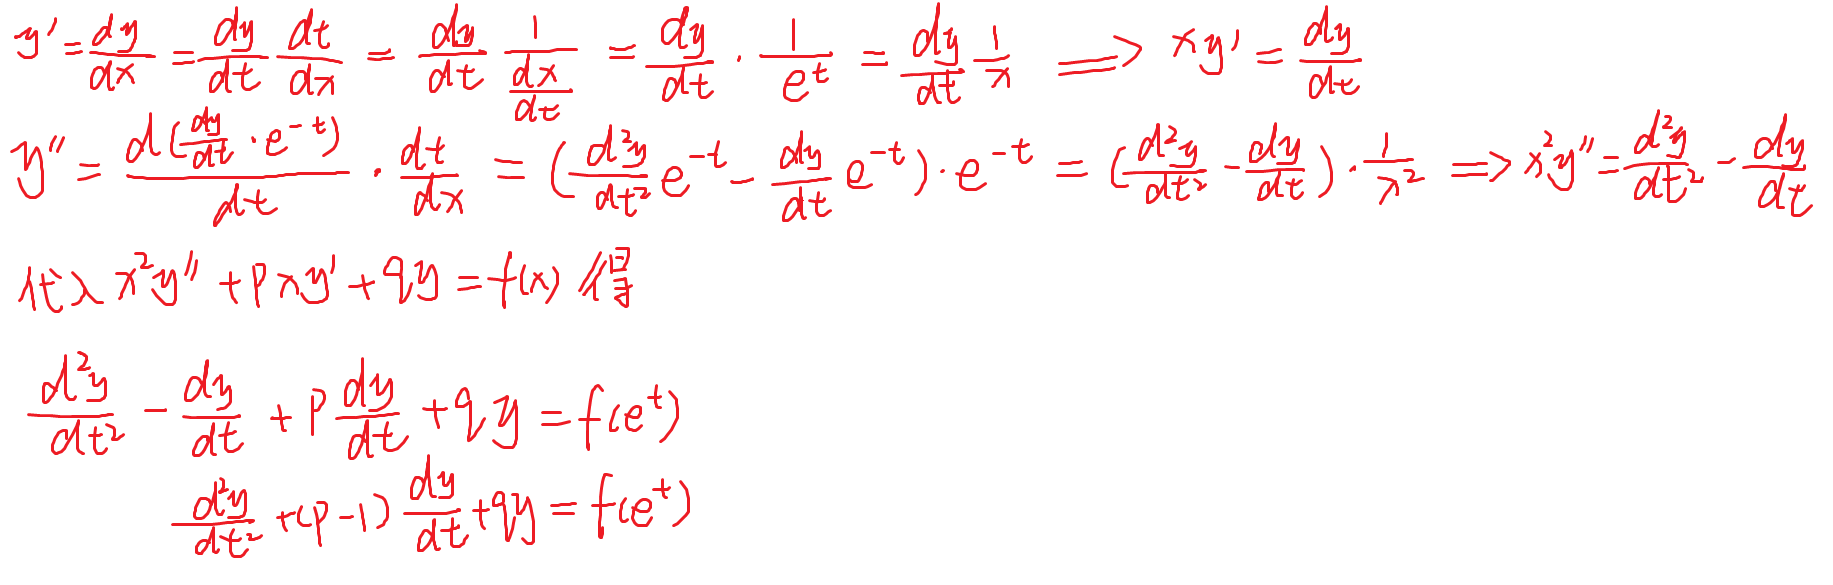 y' = dy/dx = dy/dt dt/dx = dy/dt 1/(dx/dt) = dy/dt · 1/e^t = dy/dt 1/x ⟹ xy' = dy/dt
y'' = d(dy/dt · e^{-t})/dt · dt/dx = (d²y/dt² e^{-t} - dy/dt e^{-t}) · e^{-t} = (d²y/dt² - dy/dt) · 1/x² ⟹ x²y'' = d²y/dt² - dy/dt
代入 x²y'' + pxy' + qy = f(x) 得
d²y/dt² - dy/dt + p dy/dt + qy = f(e^t)
d²y/dt² + (p-1) dy/dt + qy = f(e^t)